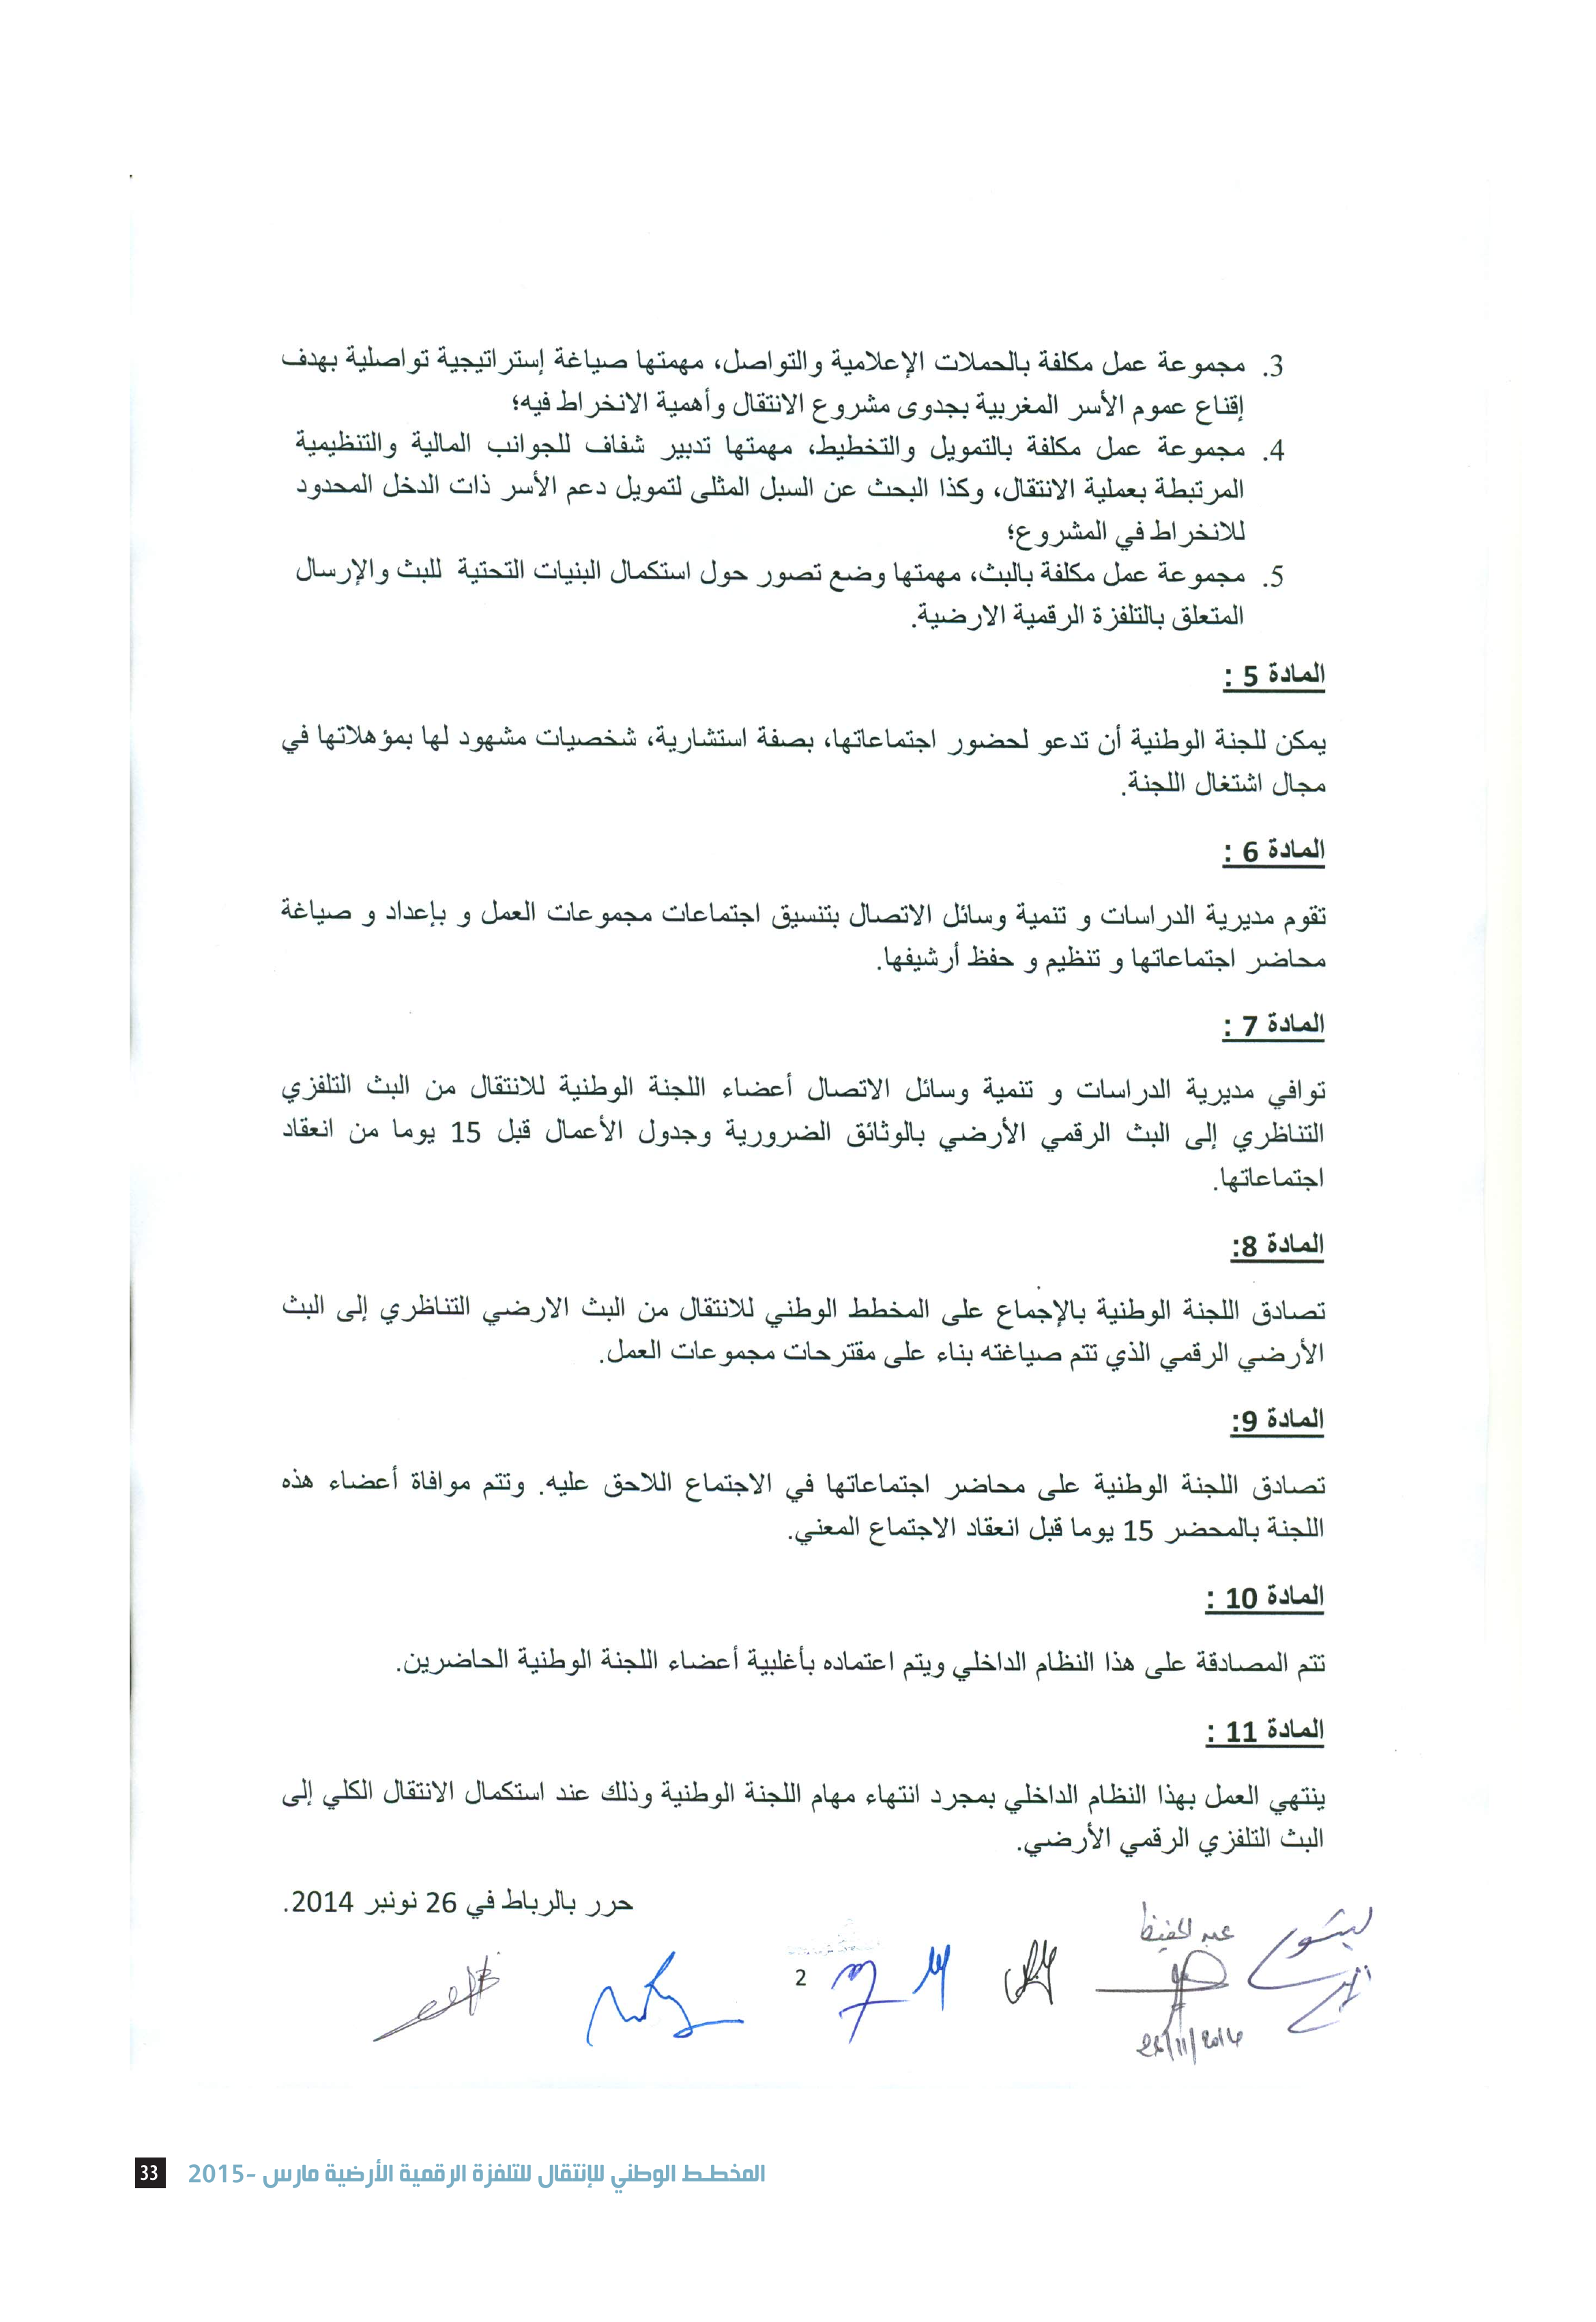 3. مجموعة عمل مكلفة بالحملات الإعلامية والتواصل، مهمتها صياغة إستراتيجية تواصلية بهدف
إقناع عموم الأسر المغربية بجدوى مشروع الانتقال وأهمية الانخراط فيه؛
4. مجموعة عمل مكلفة بالتمويل والتخطيط، مهمتها تدبير شفاف للجوانب المالية والتنظيمية
المرتبطة بعملية الانتقال، وكذا البحث عن السبل المثلى لتمويل دعم الأسر ذات الدخل المحدود
للانخراط في المشروع؛
5. مجموعة عمل مكلفة بالبث، مهمتها وضع تصور حول استكمال البنيات التحتية للبث والإرسال
المتعلق بالتلفزة الرقمية الارضية.
المادة 5 :
يمكن للجنة الوطنية أن تدعو لحضور اجتماعاتها، بصفة استشارية، شخصيات مشهود لها بمؤهلاتها في
مجال اشتغال اللجنة.
المادة 6 :
تقوم مديرية الدراسات و تنمية وسائل الاتصال بتنسيق اجتماعات مجموعات العمل و بإعداد و صياغة
محاضر اجتماعاتها و تنظيم و حفظ أرشيفها.
المادة 7 :
توافي مديرية الدراسات و تنمية وسائل الاتصال أعضاء اللجنة الوطنية للانتقال من البث التلفزي
التناظري إلى البث الرقمي الأرضي بالوثائق الضرورية وجدول الأعمال قبل 15 يوما من انعقاد
اجتماعاتها.
المادة 8:
تصادق اللجنة الوطنية بالإجماع على المخطط الوطني للانتقال من البث الارضي التناظري إلى البث
الأرضي الرقمي الذي تتم صياغته بناء على مقترحات مجموعات العمل.
المادة 9:
تصادق اللجنة الوطنية على محاضر اجتماعاتها في الاجتماع اللاحق عليه. وتتم موافاة أعضاء هذه
اللجنة بالمحضر 15 يوما قبل انعقاد الاجتماع المعني.
المادة 10 :
تتم المصادقة على هذا النظام الداخلي ويتم اعتماده بأغلبية أعضاء اللجنة الوطنية الحاضرين.
المادة 11 :
ينتهي العمل بهذا النظام الداخلي بمجرد انتهاء مهام اللجنة الوطنية وذلك عند استكمال الانتقال الكلي إلى
البث التلفزي الرقمي الأرضي.
حرر بالرباط في 26 نونبر 2014.
عبد الحفيظ
2
المخطط الوطني للإنتقال للتلفزة الرقمية الأرضية مارس -2015
33